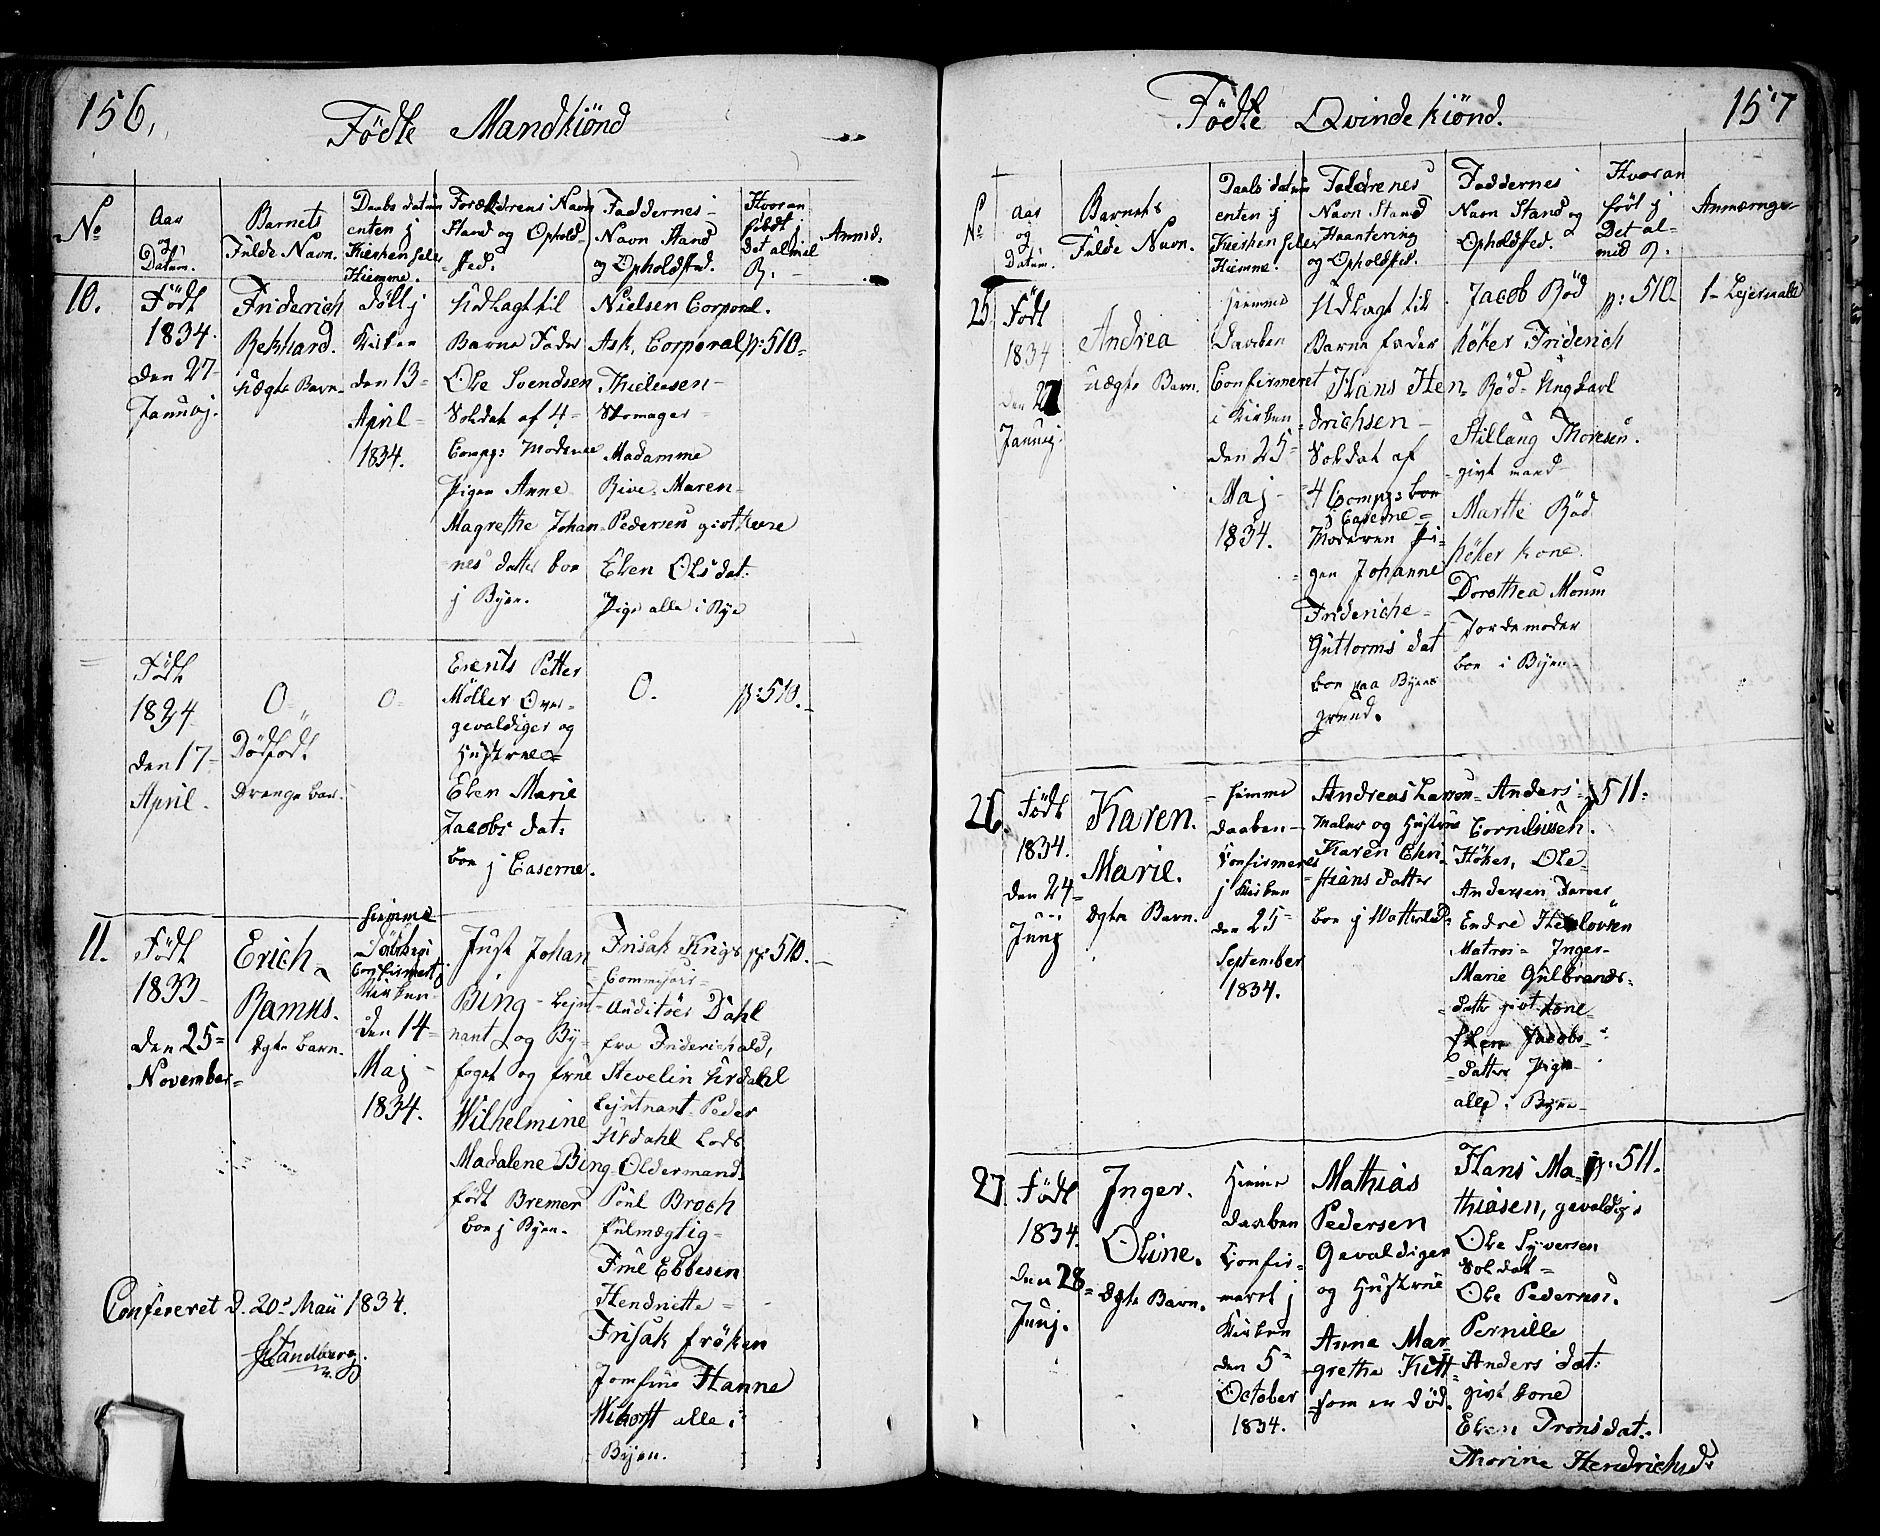 156.
Födte Mandkiönd
No
Aar
og
Datum.
Barnets
Fulde Navn.
Daabs datum
enten j
Kierken heler
Hiemme.
Forældrens Navn
Stand og Ophold-
sted.
Faddernes
Navn Stand
og Opholdsted.
Hvoran
fördt j
det almil
R:
Anmd:
10.
Födt
1834.
den 27-
Januaj.
Friderich
Rekhard.
uægte Barn-
döbt j
Kirken
den 13-
April-
1834.
Udlagt til
Barne Fader
Ole Svendsen
Soldat af 4-
Compg: Moderen
Pigen Anne
Magrethe Johan-
nes datter boe
j Byen.
Nielsen Corporal.
Ask, Corporal
Thielesen-
Skomager-
Madamme
Rive- Maren-
Pedersen givt kone
Elen Ols dat:
Pige alle i Bye
p:510-
Födt
1834
den 17-
April.
0-
Dödfödt
Drenge barn.
0-
Erents Petter
Möller Over-
gevaldiger og
Hustrue-
Elen Marie
Jacobs dat:
boe j Caserne.
0.
p:510.-
11.
Födt
1833-
den 25-
November-
Erich-
Ramus.
Egte barn.
hiemme
Döbt
Confirmert j
Kirken-
den 14-
Maj-
1834.
Just Johan
Bing- Lejut-
nant og By-
foget og frue
Wilhelmine
Madalene Bing
födt Bremer
boe j Byen.
Frisak Krigs
Commisair-
Auditöer Dahl
fra Friderichald,
Stevelin Urdahl
Lejutnant- Peder
Urdahl Lods
Oldermand.
Poul Broch
fulmægtig-
Frue Ebbesen
Hendriette-
Frisak fröken
Jomfrue Hanne
Wikorst alle i
Byen.
p:510.-
Confereret d. 20de Maii 1834.
Sandberg.
157
Födte Qvindekiönd.
No
Aar
og
Datum.
Barnets
Fulde Navn.
Daabs datum
enten j
Kierken heler
Hiemme.
Foldrenes
Navn Stand
Haantering
og Opholdsted.
Faddernes
Navn Stand og
Opholdsted.
Hvoran
fört j
Det al-
mid R:
Anmærnger
25
Födt
1834
den 27
Januaj.
Andrea
uægte Barn.
hiemme
daaben
Confirmeret
i Kirken
den 25-
Maj-
1834.
Udlagt til
Barne fader
Hans Hen-
drichsen-
Soldat af
4 Compg: boe
j Caserne-
Moderen Pi-
gen Johanne
Frideriche-
Guttorms dat
boe paa Byens
grund.
Jacob Röd
höker Friderich
Röd- Ungkarl
Stillaug Thoresen.
givt mand
Marthe Röd
höker kone.
Dorothea Moum
Jordemoder
boe i Byen-
p:510.
1- Lejermaal
26.
Födt
1834.
den 24-
Junj
Karen.
Marie.
Ægte Barn.
hiemme
daaben-
Confirmeret
j Kirken
den 25-
September
1834.
Andreas Larsen-
Maler og Hustrue
Karen Chri-
stians Datter
boe j Watterled.
Anders
Cornelusen.
Höker, Ole-
Andersen Farver
Endre Helovsen
Matros- Inger-
Marie Gulbrands-
datter givt kone-
Elen Jacobs-
datter Pige-
alle i Byen-
p511:
27.
Födt
1834.
den 28-
Junj.
Inger.
Oline.
Ægte Barn.
Hiemme
daaben
Confir-
meret j
Kirken
den 5-
October
1834.
Mathias
Pedersen
Gevaldiger
og Hustrue
Anna Mar-
grethe Kitt-
som er död.
Hans Ma-
thiasen, gevaldiger
Ole Syversen
Soldat-
Ole Pedersen.
Pernille
Anders dat:
givt kone
Elen Trons dat.
Thorine Hendrichsd:
p:511.